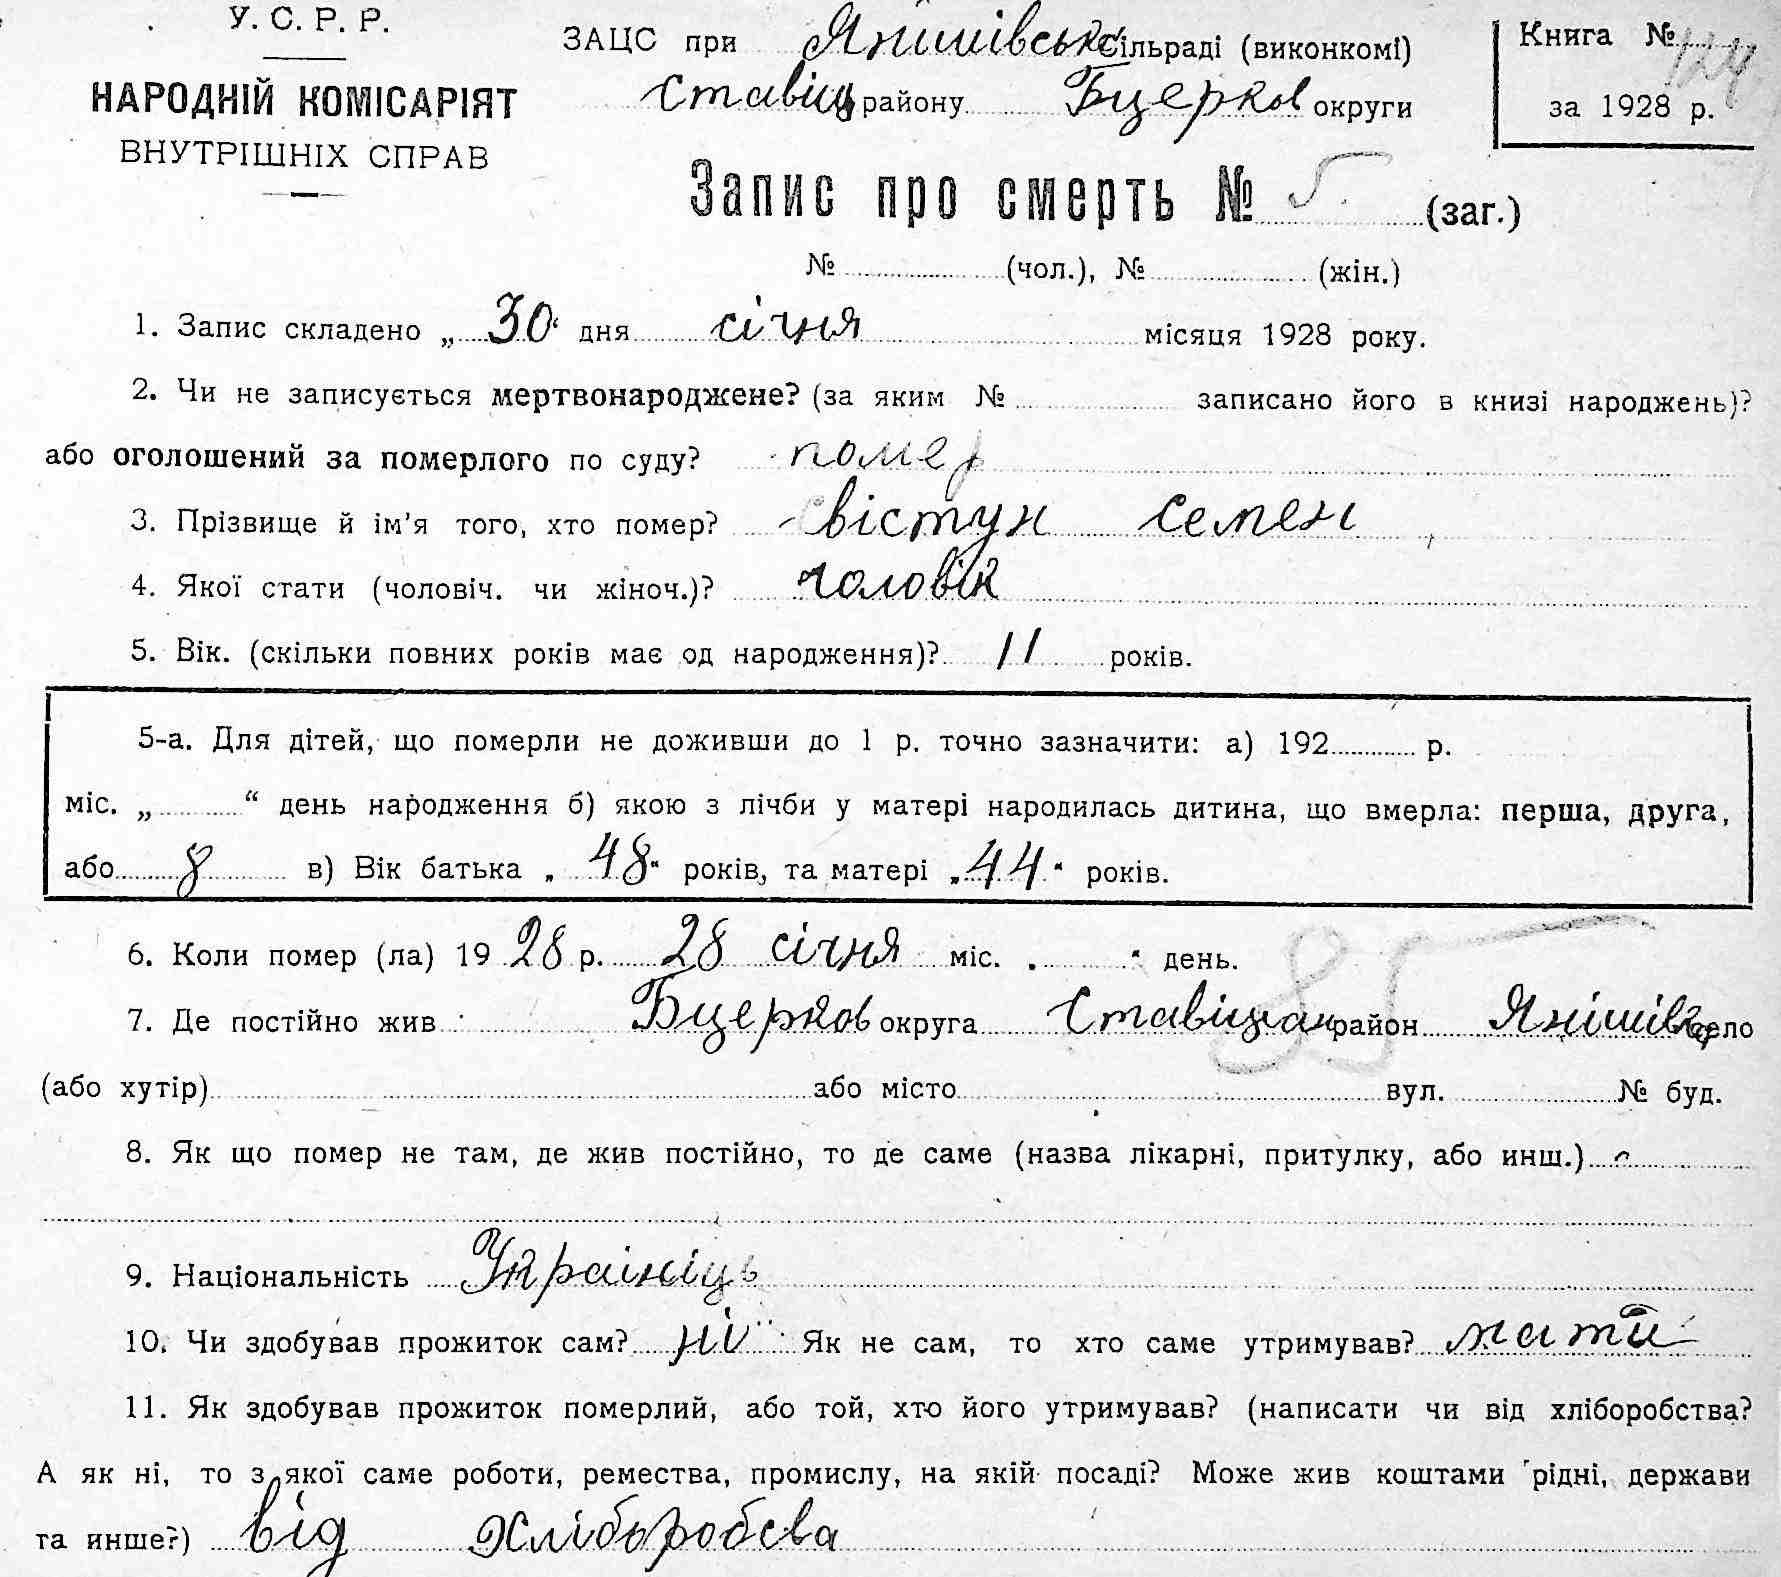 У. С. Р. Р.
НАРОДНІЙ КОМІСАРІЯТ
ВНУТРІШНІХ СПРАВ
ЗАЦС при Янішівськ сільраді (виконкомі)
Ставищ району Бцерков округи
Книга № 124
за 1928 р.
Запис про смерть № 5. (заг.)
№ (чол.), № (жін.)
1. Запис складено „ 30 “ дня січня місяця 1928 року.
2. Чи не записується мертвонароджене? (за яким № записано його в книзі народжень)?
або оголошений за померлого по суду? помер
3. Прізвище й ім'я того, хто помер? Свістун Семен
4. Якої стати (чоловіч. чи жіноч.)? чоловік
5. Вік. (скільки повних років має од народження)? 11 років.
5-а. Для дітей, що померли не доживши до 1 р. точно зазначити: а) 192 р.
міс. „ “ день народження б) якою з лічби у матері народилась дитина, що вмерла: перша, друга,
або 8 в) Вік батька „ 48 “ років, та матері „ 44 “ років.
6. Коли помер (ла) 19 28 р. 28 січня міс. „ “ день.
7. Де постійно жив Бцерков округа Ставіщан район Янішівка село
(або хутір) або місто вул. № буд.
85
8. Як що помер не там, де жив постійно, то де саме (назва лікарні, притулку, або инш.)
9. Національність Україніць
10. Чи здобував прожиток сам? ні Як не сам, то хто саме утримував? мати
11. Як здобував прожиток померлий, або той, хто його утримував? (написати чи від хліборобства?
А як ні, то з якої саме роботи, ремества, промислу, на якій посаді? Може жив коштами рідні, держави
та инше?) від Хліборобсва